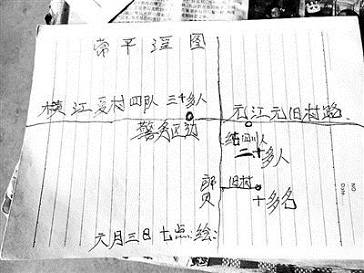 常平渲图
横江夏村四队三十多人
元江元旧村路
警务区站
四川人
二十多人
旧村
十多名
六月三日七点绘